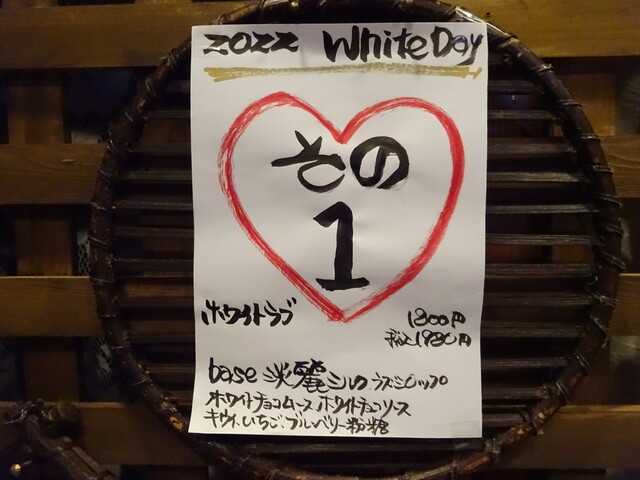 2022 WhiteDay
その
1
ホワイトラブ
1800円
税込1980円
base 淡麗ミルク ラズシロップ
ホワイトチョコムース ホワイトチョコソース
キウイ、いちご、ブルーベリー 粉糖